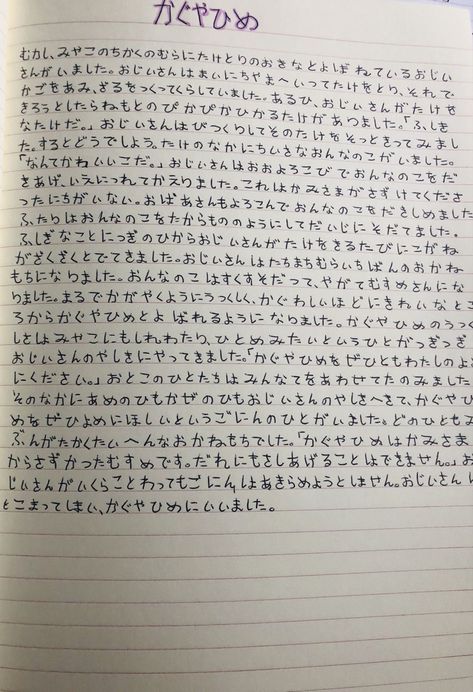 かぐやひめ
むかし、みやこのちかくのむらにたけとりのおきなとよばれているおじい
さんがいました。おじいさんはまいにちやまへいってたけをとり、それで
かごをあみ、ざるをつくってくらしていました。あるひ、おじいさんがたけを
きろうとしたらねもとのぴかぴかひかるたけがあつました。「ふしぎ
なたけだ。」おじいさんはびつくりしてそのたけをそっときってみまし
た。するとどうでしょう。たけのなかにちいさなおんなのこがいました。
「なんてかわいいこだ。」おじいさんはおおよろこびでおんなのこをだ
きあげ、いえにつれてかえりました。これはかみさまがさずけてくださ
ったにちがいない。おばあさんもよろこんでおんなのこをだきしめました
ふたりはおんなのこをたからもののようにしてだいじにそだてました。
ふしぎなことにつぎのひからおじいさんがたけをきるたびにこがね
がざくざくとでてきました。おじいさんはたちまちむらいちばんのおかね
もちになりました。おんなのこはすくすそだつて、やがてむすめさんにな
りました。まるでかがやくようにうつくしく、かぐわしいほどにきれいなとこ
ろからかぐやひめとよばれるようになりました。かぐやひめのうつく
しさはみやこにもしれわたり、ひとめみたいというひとがつぎつぎ
おじいさんのやしきにやってきました。「かぐやひめをぜひともわたしのよめ
にください。」おとこのひとたちはみんなてをあわせてたのみました
そのなかにあめのひもかぜのひもおじいさんのやしきへきて、かぐやひ
めをぜひよめにほしいというごにんのひとがいました。どのひともみ
ぶんがたかくたいへんなおかねもちでした。「かぐやひめはかみさま
からさずかったむすめです。だれにもさしあげることはできません。」お
じいさんがいくらことわってもごにんはあきらめようとしません。おじいさんは
とこまってしまい、かぐやひめにいいました。